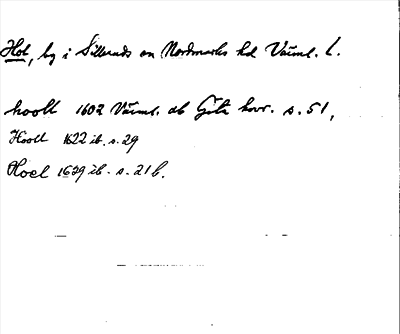 Hol, by i Silleruds sn Nordmarks hd Värml. L.
hooll 1602 Värml. ob Götz kovr. s. 51,
Hooll 1622 ib. s. 29
Hoel 1629 ib. s. 21 b.